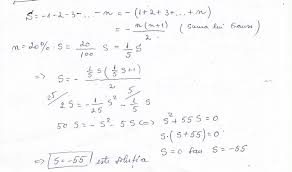 S = -1-2-3-... -n = -(1+2+3+...+n)
= - n(n+1)/2 (Suma lui Gauss)
n = 20% · S = 20/100 S = 1/5 S
=> S = - (1/5 S (1/5 S + 1))/2
25/ 2S = - 1/25 S² - 1/5 S
50 S = - S² - 5S <=> S² + 55 S = 0
S · (S + 55) = 0
S = 0 sau S = -55
=> S = -55 este soluția